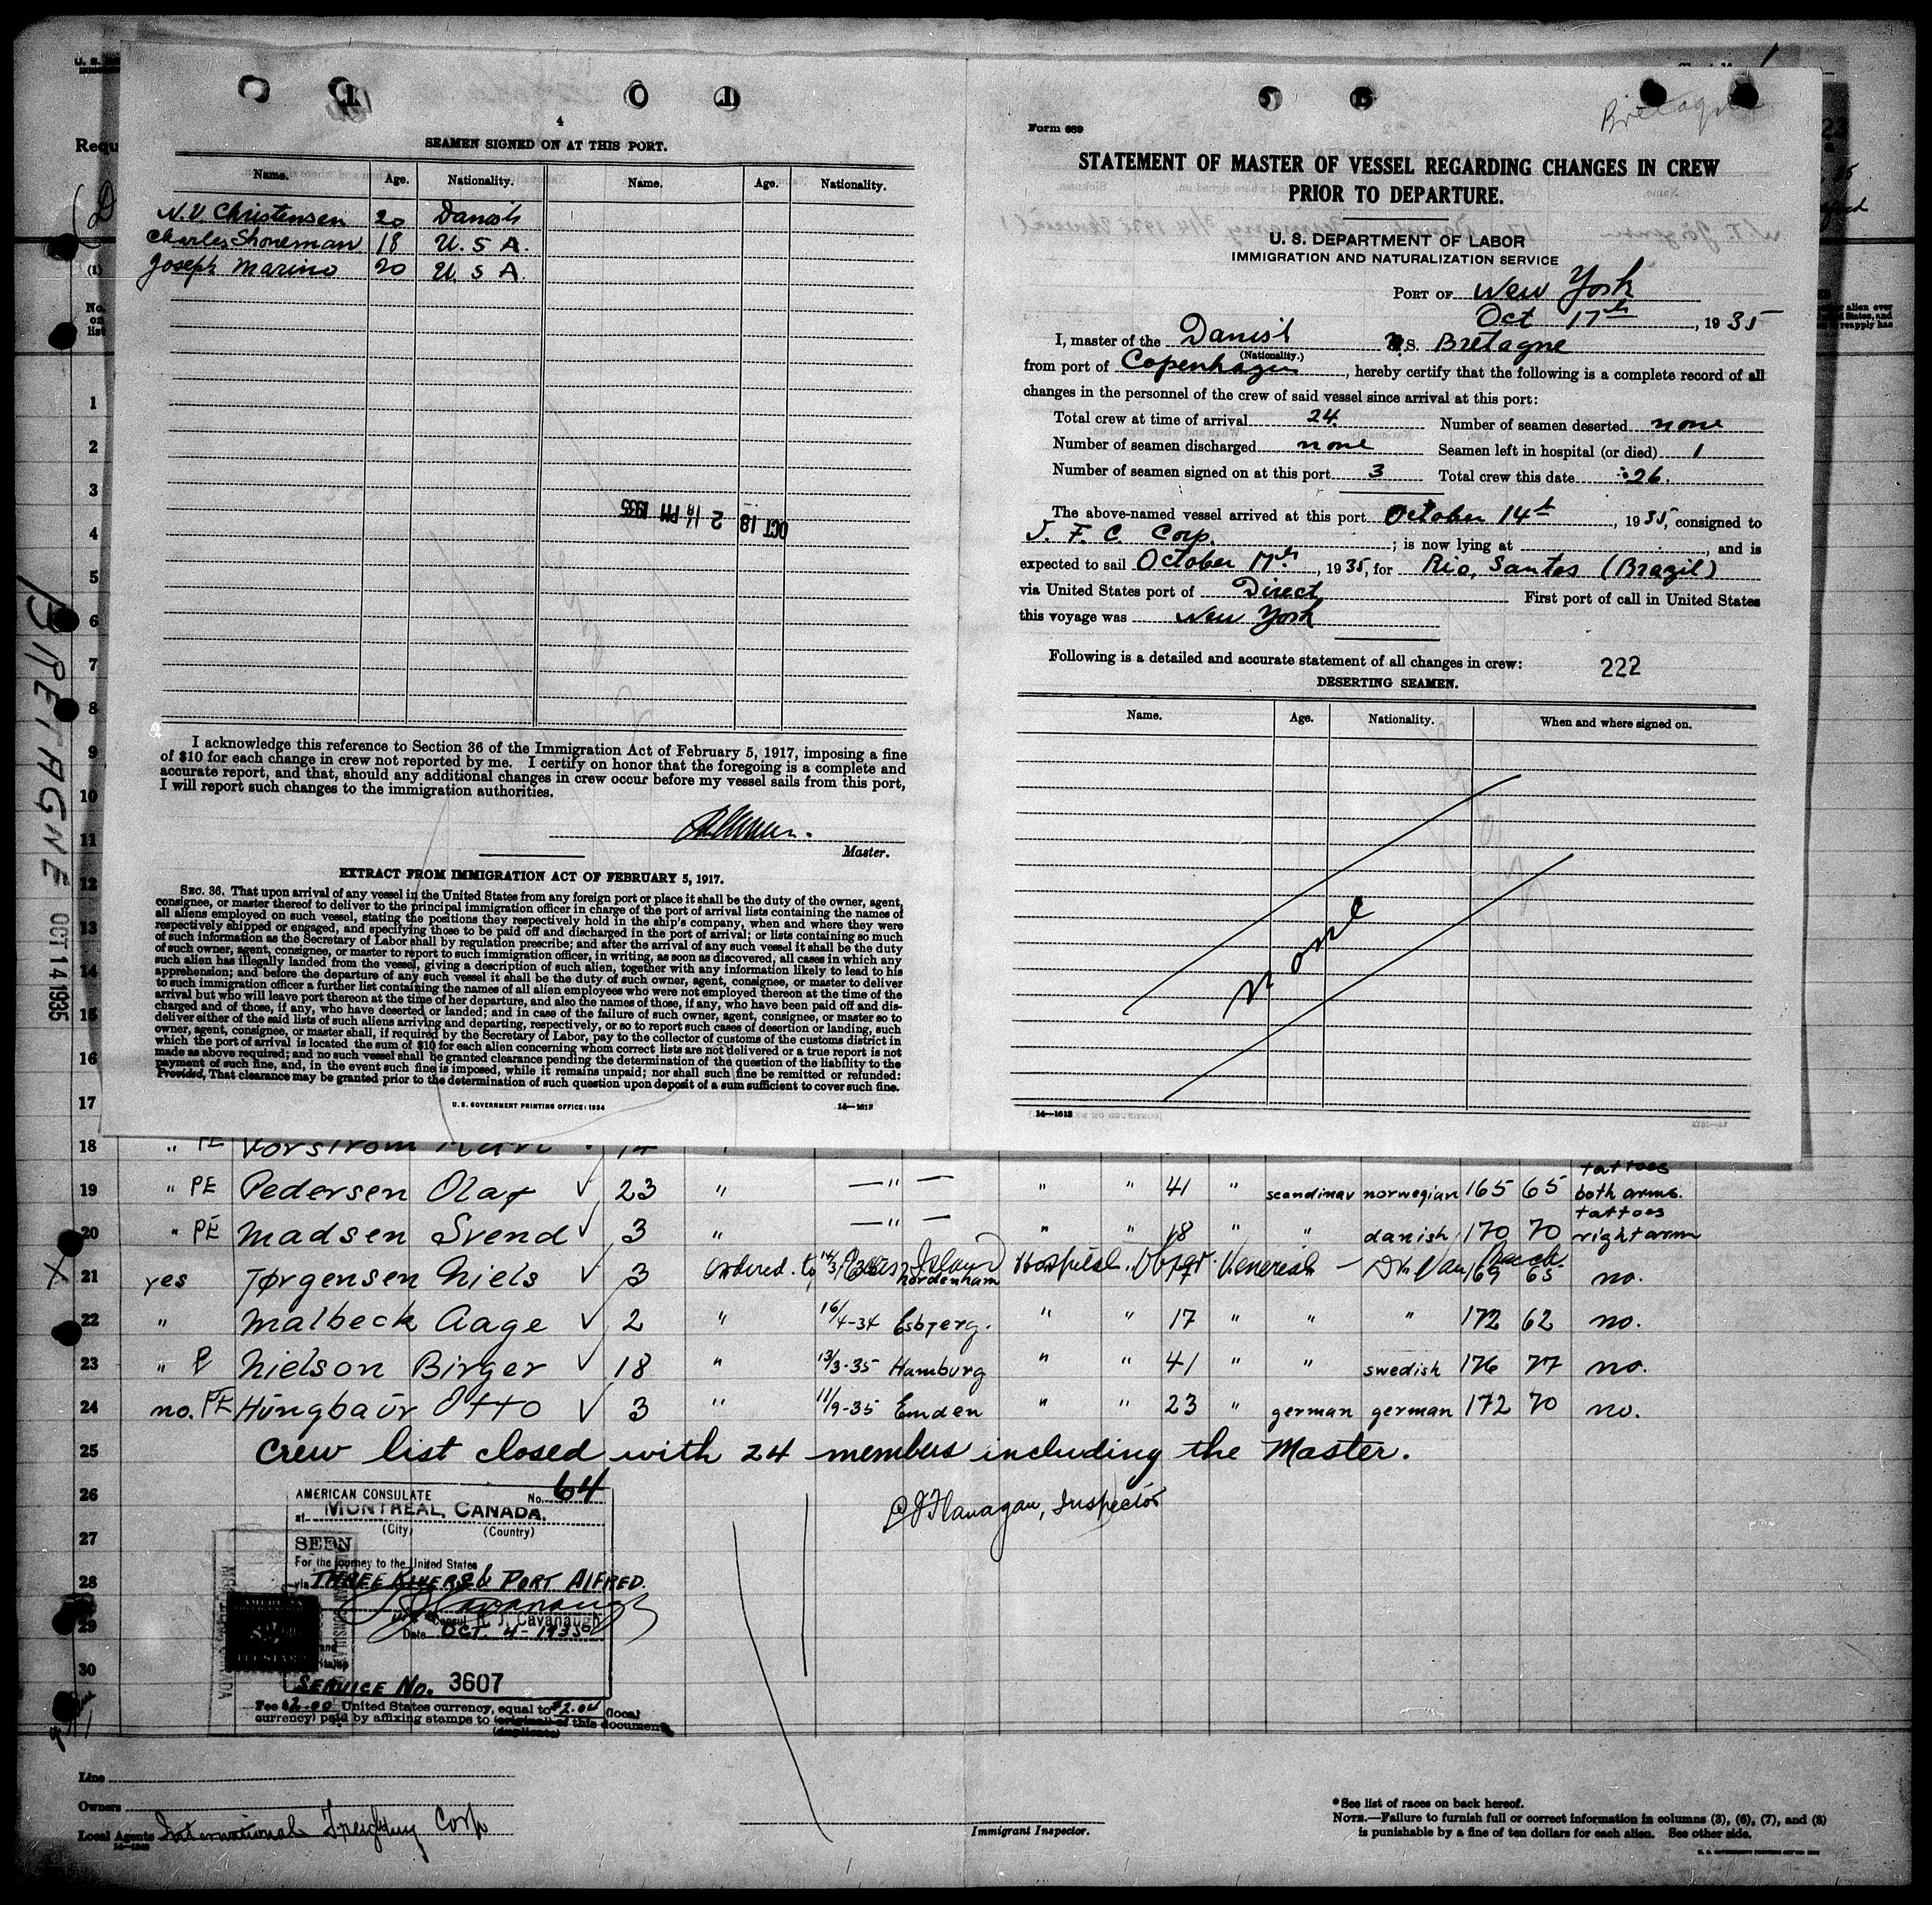 4
SEAMEN SIGNED ON AT THIS PORT.
Name. Age. Nationality. Name. Age. Nationality.
N.V. Christensen 20 Danish
Charles Shoneman 18 U.S.A.
Joseph Marino 20 U.S.A.
OCT 18 2 14 PM 1935
I acknowledge this reference to Section 36 of the Immigration Act of February 5, 1917, imposing a fine
of $10 for each change in crew not reported by me. I certify on honor that the foregoing is a complete and
accurate report, and that, should any additional changes in crew occur before my vessel sails from this port,
I will report such changes to the immigration authorities.
Master.
EXTRACT FROM IMMIGRATION ACT OF FEBRUARY 5, 1917.
SEC. 36. That upon arrival of any vessel in the United States from any foreign port or place it shall be the duty of the owner, agent,
consignee, or master thereof to deliver to the principal immigration officer in charge of the port of arrival lists containing the names of
all aliens employed on such vessel, stating the positions they respectively hold in the ship's company, when and where they were
respectively shipped or engaged, and specifying those to be paid off and discharged in the port of arrival; or lists containing so much
of such information as the Secretary of Labor shall by regulation prescribe; and after the arrival of any such vessel it shall be the duty
of such owner, agent, consignee, or master to report to such immigration officer, in writing, as soon as discovered, all cases in which any
such alien has illegally landed from the vessel, giving a description of such alien, together with any information likely to lead to his
apprehension; and before the departure of any such vessel it shall be the duty of such owner, agent, consignee, or master to deliver
to such immigration officer a further list containing the names of all alien employees who were not employed thereon at the time of the
arrival but who will leave port thereon at the time of her departure, and also the names of those, if any, who have been paid off and dis-
charged and of those, if any, who have deserted or landed; and in case of the failure of such owner, agent, consignee, or master so to
deliver either of the said lists of such aliens arriving and departing, respectively, or so to report such cases of desertion or landing, such
owner, agent, consignee, or master shall, if required by the Secretary of Labor, pay to the collector of customs of the customs district in
which the port of arrival is located the sum of $10 for each alien concerning whom correct lists are not delivered or a true report is not
made as above required; and no such vessel shall be granted clearance pending the determination of the question of the liability to the
payment of such fine, and, in the event such fine is imposed, while it remains unpaid; nor shall such fine be remitted or refunded:
Provided, That clearance may be granted prior to the determination of such question upon deposit of a sum sufficient to cover such fine.
U.S. GOVERNMENT PRINTING OFFICE: 1934 14—1613
Bretagne
Form 689
STATEMENT OF MASTER OF VESSEL REGARDING CHANGES IN CREW
PRIOR TO DEPARTURE.
U. S. DEPARTMENT OF LABOR
IMMIGRATION AND NATURALIZATION SERVICE
PORT OF New York
Oct 17th, 1935
I, master of the Danish S. Bretagne
(Nationality.)
from port of Copenhagen, hereby certify that the following is a complete record of all
changes in the personnel of the crew of said vessel since arrival at this port:
Total crew at time of arrival 24. Number of seamen deserted none
Number of seamen discharged none Seamen left in hospital (or died) 1
Number of seamen signed on at this port 3 Total crew this date 26.
The above-named vessel arrived at this port October 14th, 1935, consigned to
J. F. C. Corp. ; is now lying at , and is
expected to sail October 17th, 1935, for Rio, Santos (Brazil)
via United States port of Direct First port of call in United States
this voyage was New York
Following is a detailed and accurate statement of all changes in crew: 222
DESERTING SEAMEN.
Name. Age. Nationality. When and where signed on.
none
14—1613
Requ
No. on list
1
2
3
4
5
6
7
8
9
10
11
12
13
14
15
16
17
BRETAGNE OCT 14 1935
18 " PE
tattoes
19 " PE Pedersen Olaf ✓ 23 " —"— " " 41 " scandinav norwegian 165 65 both arms.
tattoes
20 " PE Madsen Svend ✓ 3 " —"— " " 18 " " danish 170 70 right arm
21 yes Jørgensen Niels ✓ 3 Ordered to Ellis Island Hospital Nordenham 17 Venereal 169 65 no.
22 " Malbeck Aage ✓ 2 " 16/4-34 Esbjerg. " " 17 " " " 172 62 no.
23 " P Nielson Birger ✓ 18 " 13/3-35 Hamburg " " 41 " " swedish 176 77 no.
24 no. PE Hüngbaür Otto ✓ 3 " 11/9-35 Emden " " 23 " german german 172 70 no.
25 Crew list closed with 24 members including the Master.
26
27
28
29
30
Flanagan, Inspector
AMERICAN CONSULATE No. 64
at MONTREAL, CANADA.
(City) (Country)
SEEN
For the journey to the United States
via THREE RIVERS & PORT ALFRED.
Consul R. J. Cavanaugh
Date OCT. 4 - 1935
SERVICE No. 3607
Fee $2.00 United States currency, equal to $2.04 (local
currency) paid by affixing stamps to (original of this document
(duplicate)
Line
Owners
Local Agents International Freighting Corp
Immigrant Inspector.
*See list of races on back hereof.
NOTE.—Failure to furnish full or correct information in columns (3), (6), (7), and (8)
is punishable by a fine of ten dollars for each alien. See other side.